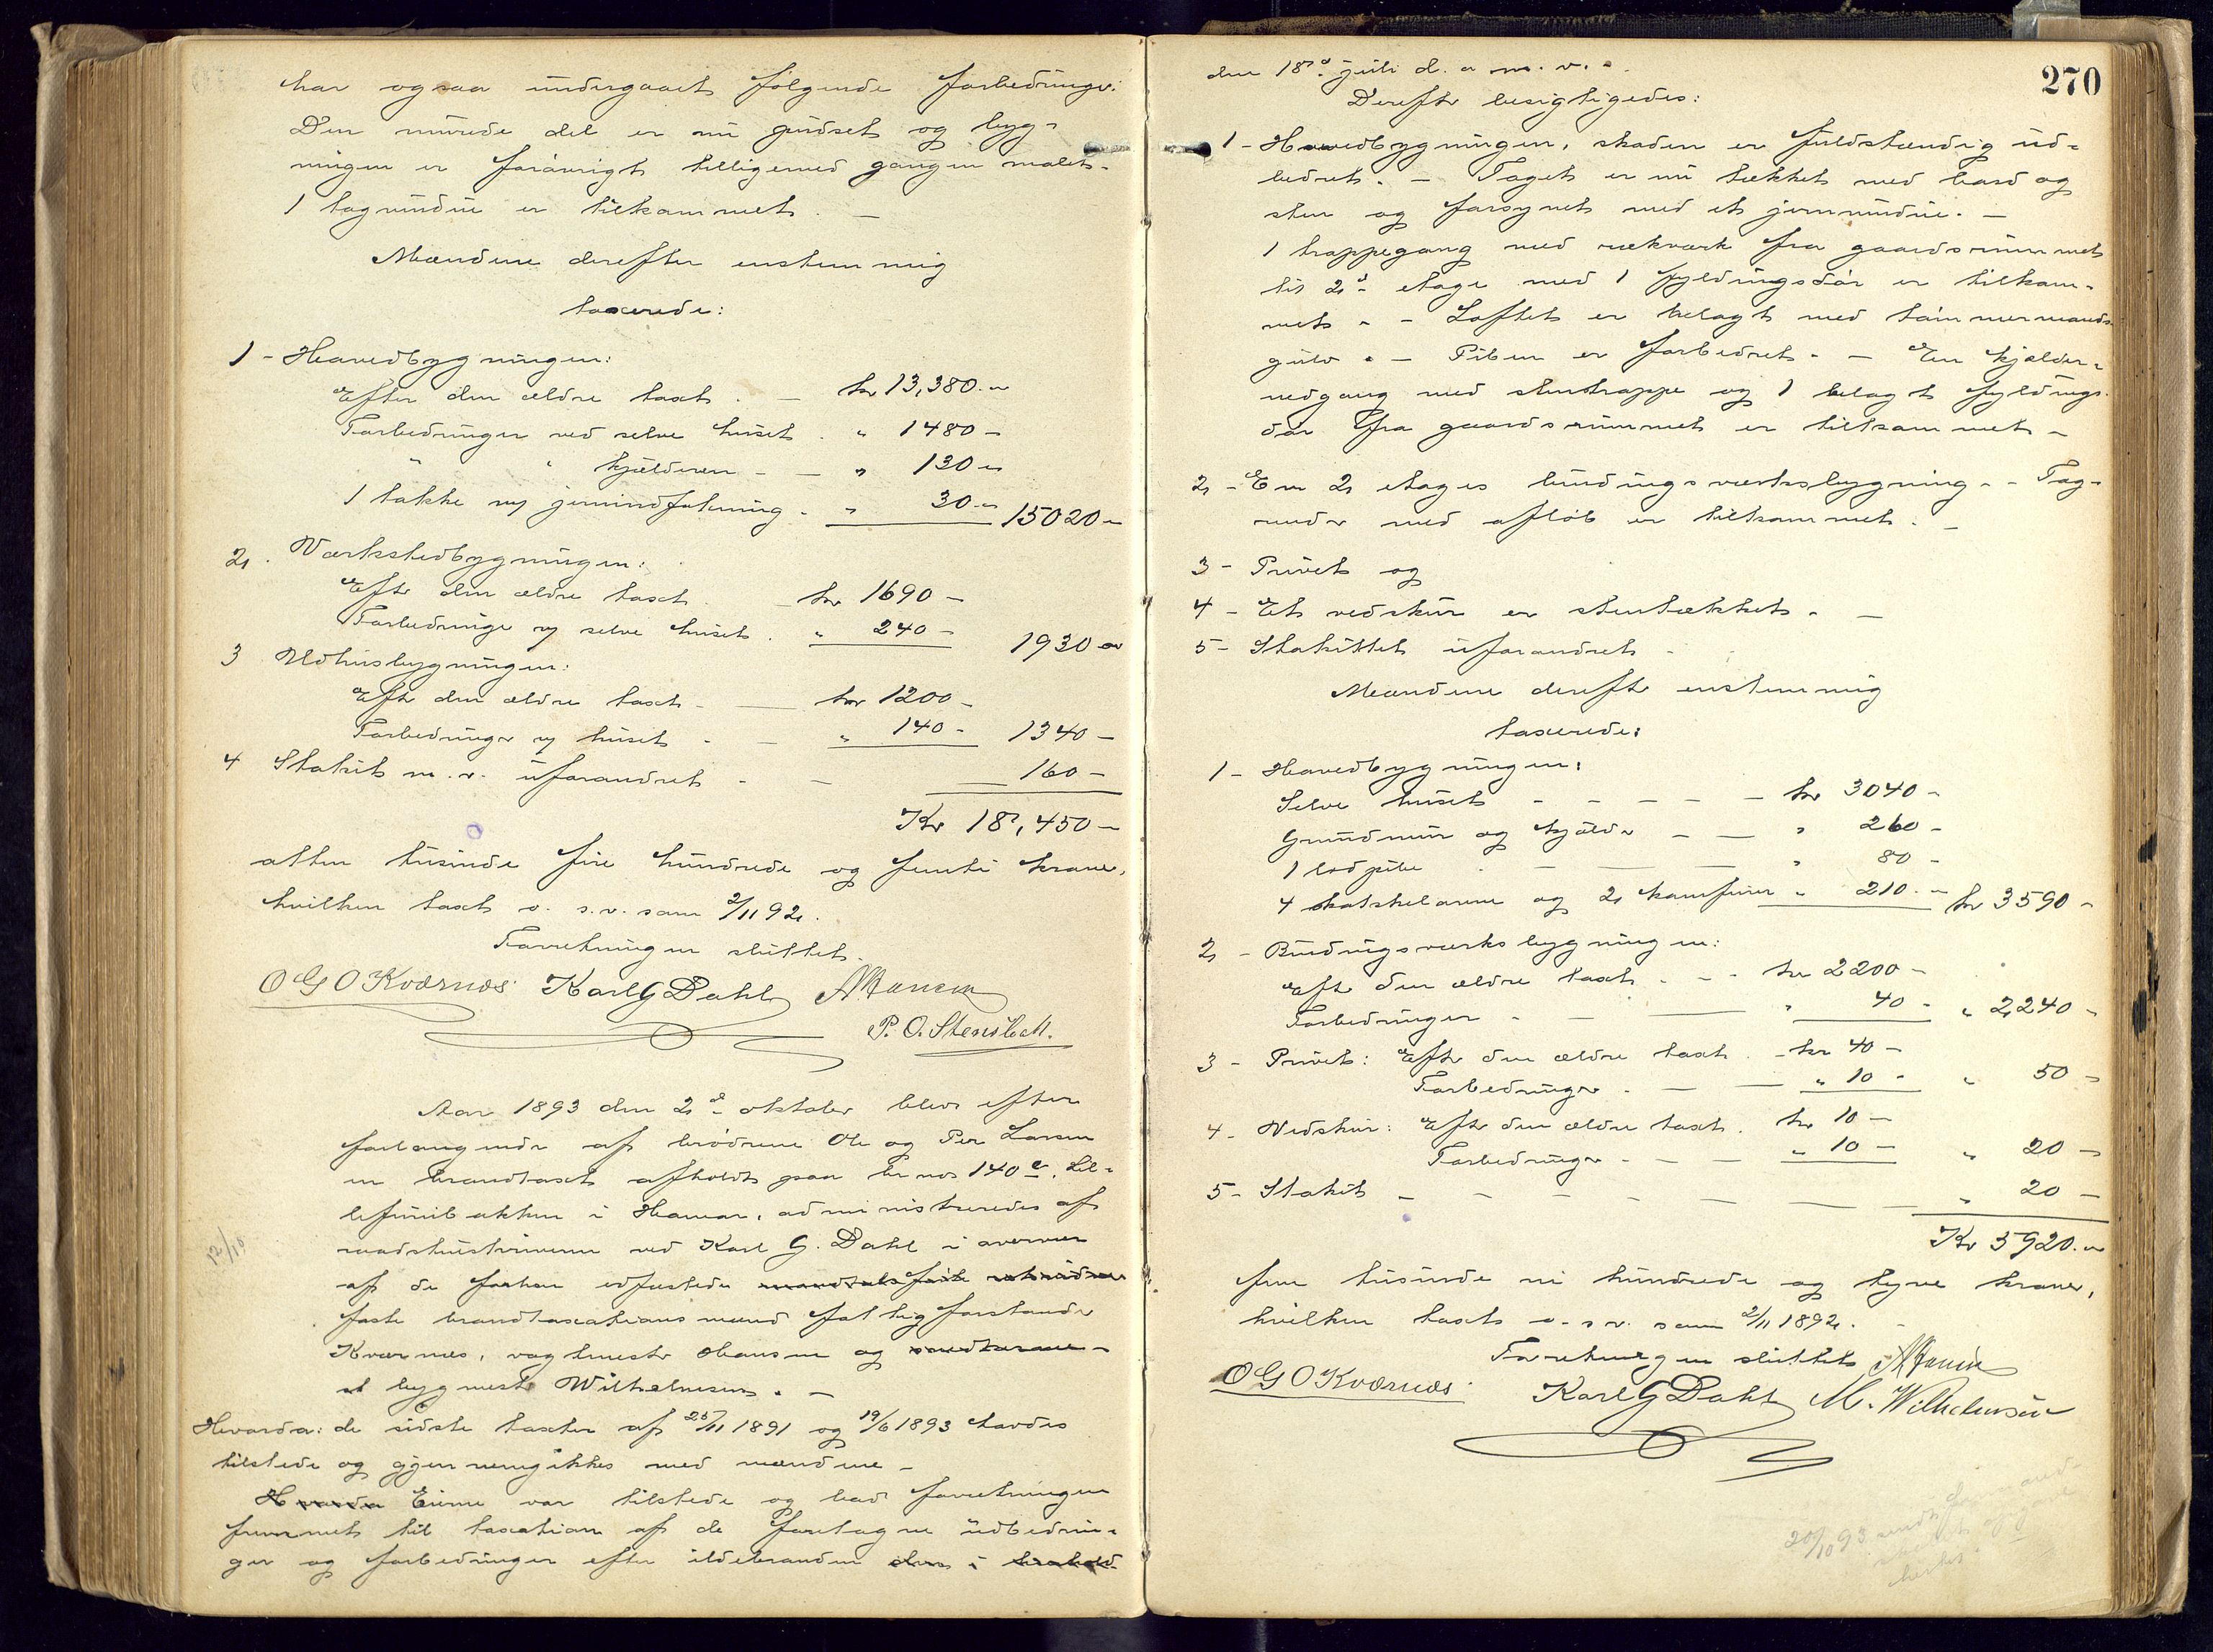 har ogsaa undergaaet følgende forbedringer:
Den murede del er nu pudset og byg-
ningen er forøvrigt tilligemed gangen malet.
1 tagvindue er tilkommet. —
Mændene derefter enstemmig
taxerede:
1 - Hovedbygningen:
Efter den ældre taxt . — kr 13,380.-
Forbedringer ved selve huset . " 1480 -
" " kjælderen - — " 130 -
1 takke ny jernindfatning - " 30 - 15020 -
2. Værkstedbygningen:
Eftr den ældre taxt . — kr 1690 -
Forbedringe v selve huset . " 240 - 1930 -
3 Udhusbygningen:
Eftr den ældre taxt - — kr 1200 -
Forbedringr v huset - — " 140 - 1340 -
4 Stakit m.v. uforandret - — 160 -
Kr 18,450 -
atten tusinde fire hundrede og femti kroner,
hvilken taxt o. s. v. som 2/11 92.
Forretningen sluttet.
O G O Kværnæs Karl G Dahl A Hansen
P. O. Stensbeck.
Aar 1893 den 2d oktober blev efter
forlangende af brødrene Ole og Per Larsen
en brandtaxt afholdt paa br nos 140 e, Lil-
lefuribakken i Hamar, administreredes af
raadstuskriveren ved Karl G. Dahl i overvær
af de forhen edfæstede
faste brandtaxationsmænd fattigforstandr
Kværnæs, vagtmestr Hansen og
bygmestr Wilhelmsen. —
Hvorda: de sidste taxter af 25/11 1891 og 19/6 1893 havdes
tilstede og gjennemgikkes med mændene -
Hvorda Eierne var tilstede og bad forretningen
fremmet til taxation af de foretagne udbedrin-
ger og forbedringer efter ildebranden den i
12/10
270
den 18d juli d. a m. v. -
Dereftr besigtigedes:
1 - Hovedbygningen, skaden er fuldstændig ud-
bedret. — Taget er nu tækket med bord og
sten og forsynet med et jernvindue. —
1 trappegang med rækværk fra gaardsrummet
til 2d etage med 1 fyldingsdør er tilkom-
met - - Loftet er belagt med tømmermands-
gulv. — Piben er forbedret. — En kjælder-
nedgang med stentrappe og 1 belagt fyldings-
dør fra gaardsrummet er tilkommet -
2 - En 2 etages bindingsværksbygning - - Tag-
rendr med afløb er tilkommet. —
3 - Privet og
4 - Et vedskur er stentækket - —
5 - Stakittet uforandret -
Mændene dereftr enstemmig
taxerede:
1 - Hovedbygningen:
Selve huset - - - - — kr 3040 -
Grundmur og kjældr - — " 260 -
1 lodpibe - — — " 80 -
4 skatskelovne og 2 komfurer " 210 - kr 3590 -
2 - Bindingsværksbygningen:
Eftr den ældre taxt - - - kr 2200 -
Forbedringer - — — " 40 - " 2,240 -
3 - Privet: Eftr den ældre taxt . - kr 40 -
Forbedringr - — — " 10 - " 50 -
4 - Vedskur: Eftr den ældre taxt . kr 10 -
Forbedringr - — — " 10 - " 20 -
5 - Stakit - - - - — — " 20 -
Kr 5920.-
fem tusinde ni hundrede og tyve kroner,
hvilken taxt o. s v. som 2/11 1892. -
Forretningen sluttet A Hansen
O G O Kværnæs Karl G Dahl M. Wilhelmsen
20/10 93 sendt